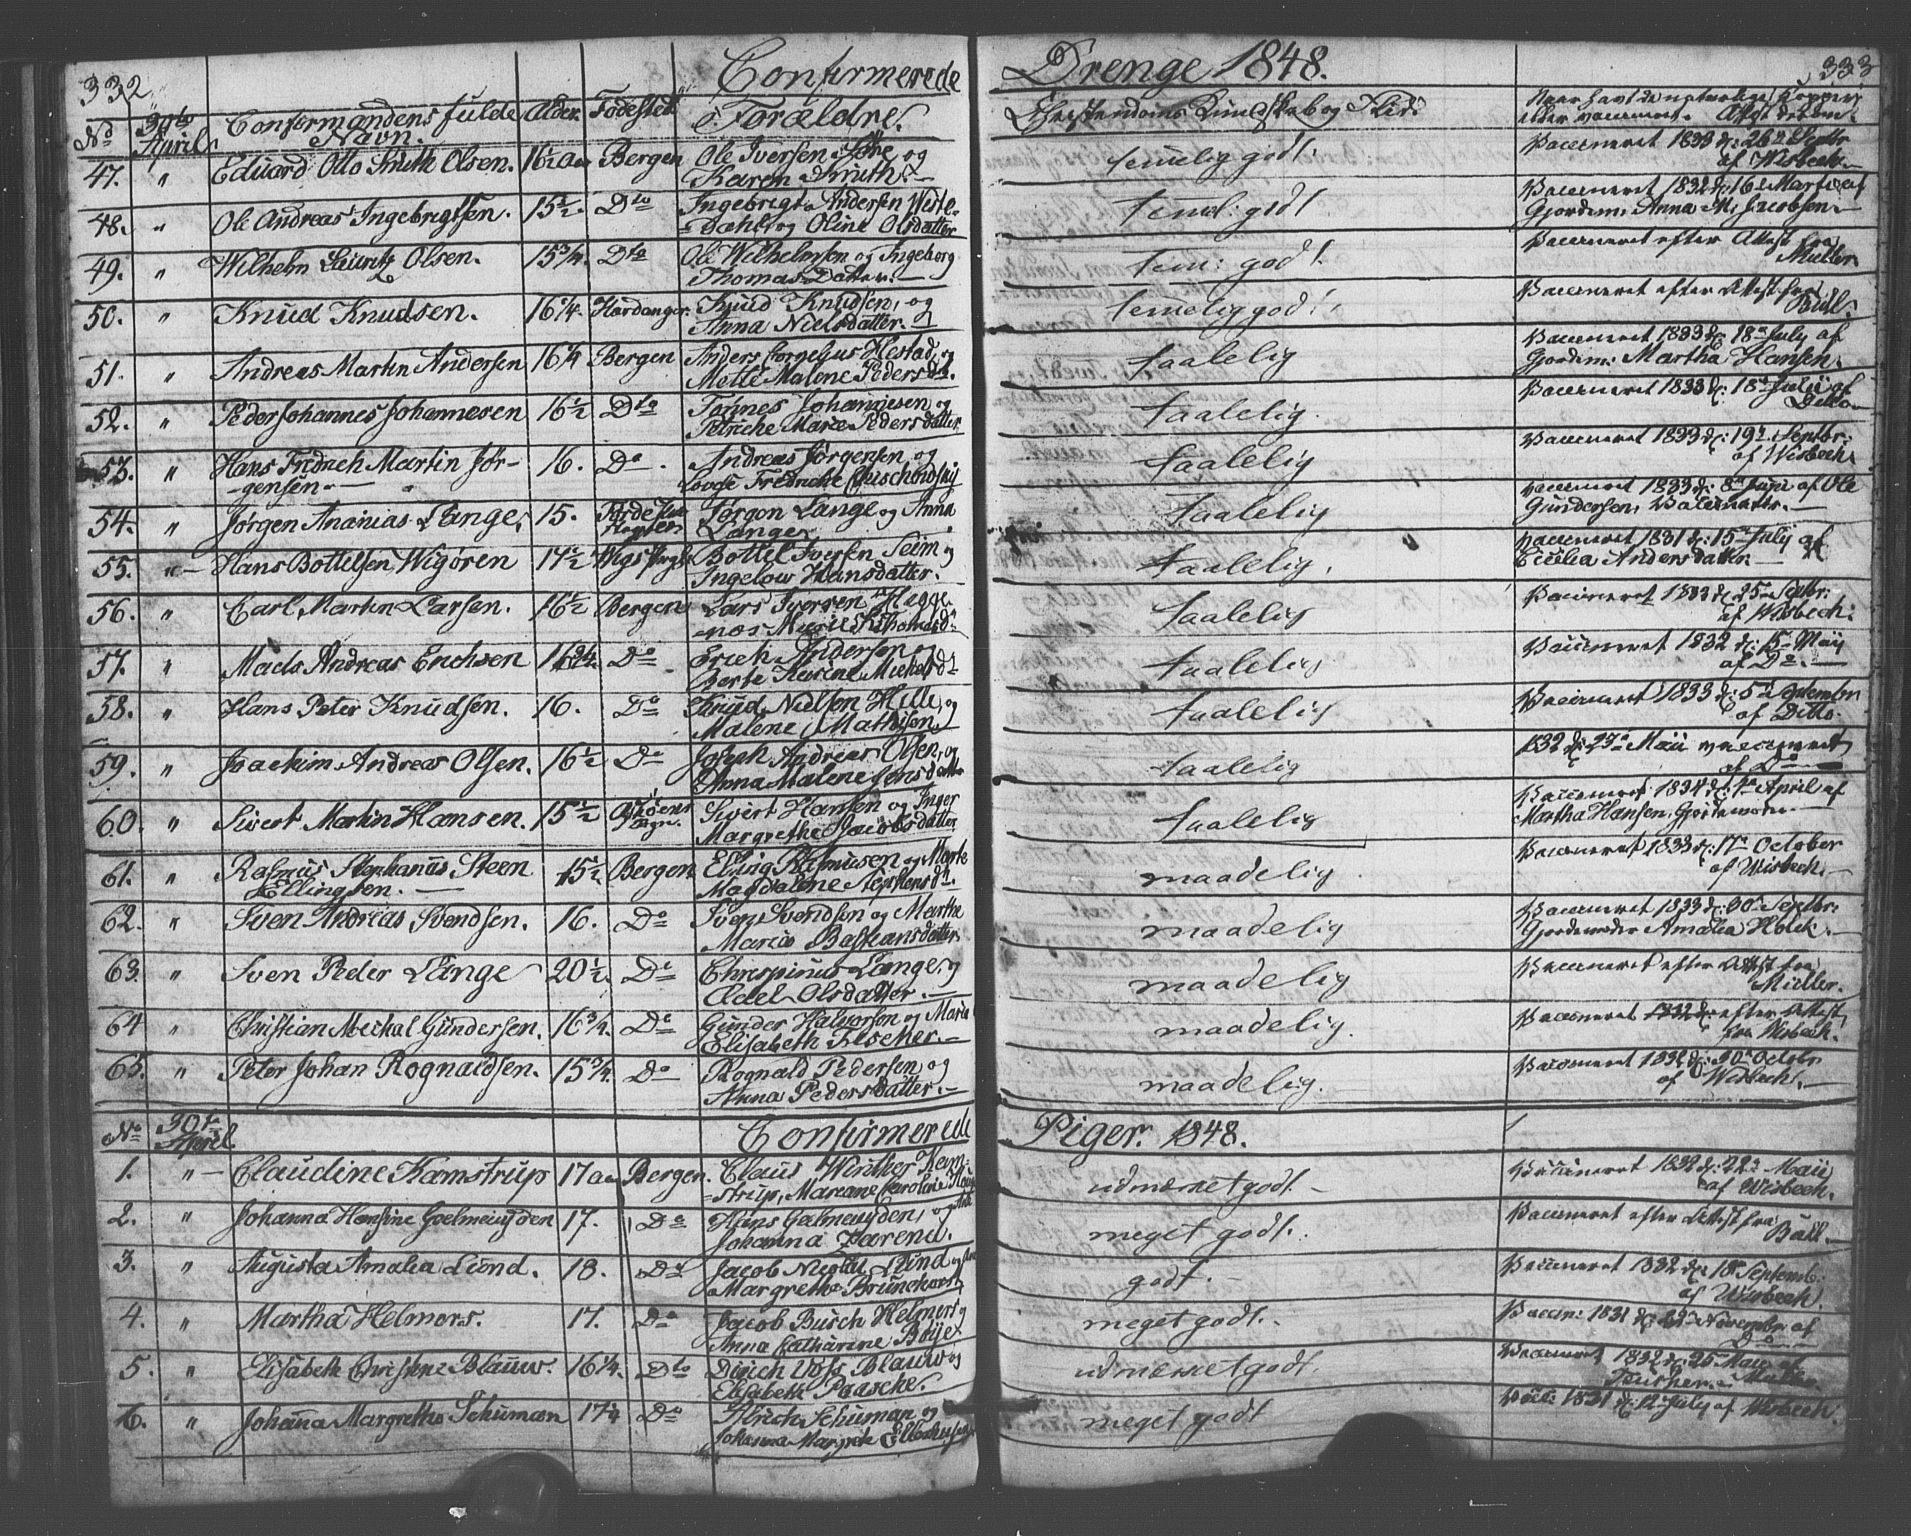 332 Confirmerede Drenge 1848. 333
No 30te April Confirmandens fulde Navn. Alder. Fødested Forældre. Christendoms Kundskab og Flid.
47. " Eduard Otto Smith Olsen. 16½ Aar Bergen Ole Iversen og Karen Smith. temelig godt. Vaccineret 1833 d: 26de Septbr af Wisbech.
48. " Ole Andreas Ingebrigtsen. 15½. Dto Ingebrigt Andersen Dahl og Oline Olsdatter teml: godt Vaccineret 1832 d: 16de Marti af Gjordem: Anna M. Jacobsen.
49. " Wilhelm Lauritz Olsen. 15¾. Dto Ole Wilhelmsen og Ingeborg Thomas Datter. tem: godt. Vaccineret efter Attest fra Müller.
50. " Knud Knudsen. 16¼. Hardanger. Knud Knudsen, og Anna Nielsdatter. temelig god: Vaccineret efter Attest fra
51. " Andreas Martin Andersen 16¼ Bergen Anders Cornelius Hestad, og Mette Malene Pedersdtr. taalelig Vaccineret 1833 d: 18de July af Gjordem: Martha Hansen.
52. " Peder Johannes Johannesen 16½ Dto Tønnes Johannesen og Petriche Marie Pedersdatter, taalelig. Vaccineret 1833 d: 18de Julii af Ditto
53. " Hans Fredrich Martin Jørgensen. 16. Do. Andreas Jørgensen og Fredricke taalelig Vaccineret 1833 d: 19de Septbr: af Wisbech.
54. " Jørgen Ananias Lange, 15. Jørgen Lange og Anna Lange taalelig Vaccineret 1833 d: 8de Juni af Ole Gundersen,
55. " Hans Bottelsen Wigøren. 17½ Bottel Iversen Seim og Ingelow Hansdatter. taalelig. Vaccineret 1831 d: 15de July af Cicilia Andersdatter
56. " Carl Martin Larsen. 16½ Bergen Lars Iversen taalelig Vaccineret 1833 d: 25de Septbr: af Wisbech:
57. " Mads Andreas Erichsen 16¾ Do Erich Andersen og Berte Karine Mickelsdr taalelig Vaccineret 1832 d: 15de Maij af Do.
58. " Hans Peter Knudsen. 16. Do Knud Nielsen Hille, og Malene Mathisen, taalelig Vaccineret 1833 d: 5te Septembr af Ditto.
59. " Joachim Andreas Olsen. 16½ Do Joseph Andreas Olsen, og Anna Malene Jensdatter taalelig 1832 d: 23de Maii vaccineret af Do
60. " Sivert Martin Hansen. 15½ Sivert Hansen og Inger Margrethe Jacobsdatter taalelig Vaccineret 1834 d: 1te April af Martha Hansen, Gjordemoder
61. " Rasmus Stephanus Steen Ellingsen. 15½ Bergen Elling Rasmusen og Marte Magdalene Stephensdr. maadelig Vaccineret 1833 d: 17de October af Wisbech.
62. " Sven Andreas Svendsen. 16. Do Sven Svendsen og Martha Maria Bastiansdatter. maadelig Vaccineret 1833 d: 30te Septbr: Gjordemoder Amalia Holck.
63. " Sven Peder Lange 20½. Do Chrispinus Lange, og Aedel Olsdatter. maadelig Vaccineret efter Attest fra Müller.
64 " Christian Mechal Gundersen. 16¾. Do Gunder Halvorsen og Maria Elisabeth Fischer. maadelig. Vaccineret 1832 d: efter Attest fra Wisbech.
65. " Peter Johan Rognaldsen. 15¾. Do Rognald Pedersen, og Anna Pedersdatter. maadelig. Vaccineret 1832 d: 30te Octobr af Wisbech.
No 30te April Confirmerede Piger. 1848.
1. " Claudine Kamstrup 17 Aar Bergen. Claus Winther Kamstrup, Mariane Caroline udmærket godt. Vaccineret 1832 d: 22de Maij af Wisbech.
2. " Johanna Hansine Gælmeuyden 17. Do Hans Gelmeuyden, og Johanna meget godt. Vaccineret efter Attest fra
3. " Augusta Amalia Lund. 18. Do Jacob Nicolai Lund og Margrethe Brunchorst godt. Vaccineret 1832 d: 18de Septemb: af Wisbech.
4. " Martha Helmers. 17. Do Jacob Busch Helmers og Anna Catharine Bøye. meget godt. Vaccin: 1831 d: Novembr af Do
5. " Elisabeth Christine Blauw. 16¼. Dto Dirich Blauw og Elisabeth Paasche. udmærket godt. Vaccineret 1832 d: 25 Maii af
6. " Johanna Margrethe Schuman 17¼ Do Alrich Schuman og Johanna Margrete meget godt 1831 d: 12 July af Wisbech.